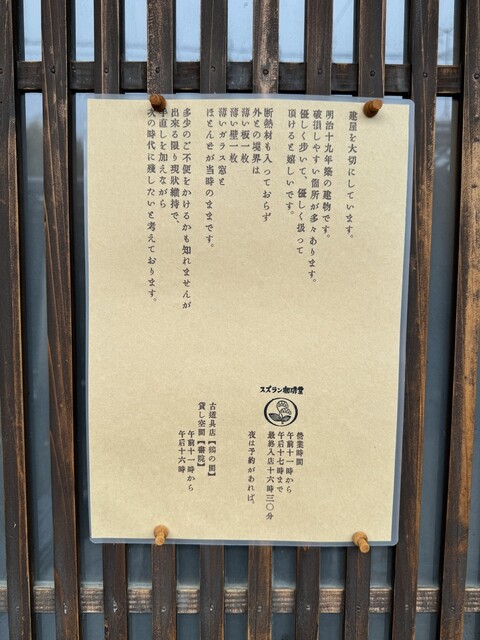 建屋を大切にしています。
明治十九年築の建物です。
破損しやすい箇所が多々あります。
優しく歩いて、優しく扱って
頂けると嬉しいです。
断熱材も入っておらず
外との境界は
薄い板一枚
薄い壁一枚
薄いガラス窓と
ほとんどが当時のままです。
多少のご不便をかけるかも知れませんが
出来る限り現状維持で、
手直しを加えながら
次の時代に残したいと考えております。
スズラン珈琲堂
営業時間
午前十一時から
午后十七時まで
最終入店十六時三〇分
夜は予約があれば。
古道具店【燈の間】
貸し空間【書院】
午前十一時から
午后十六時